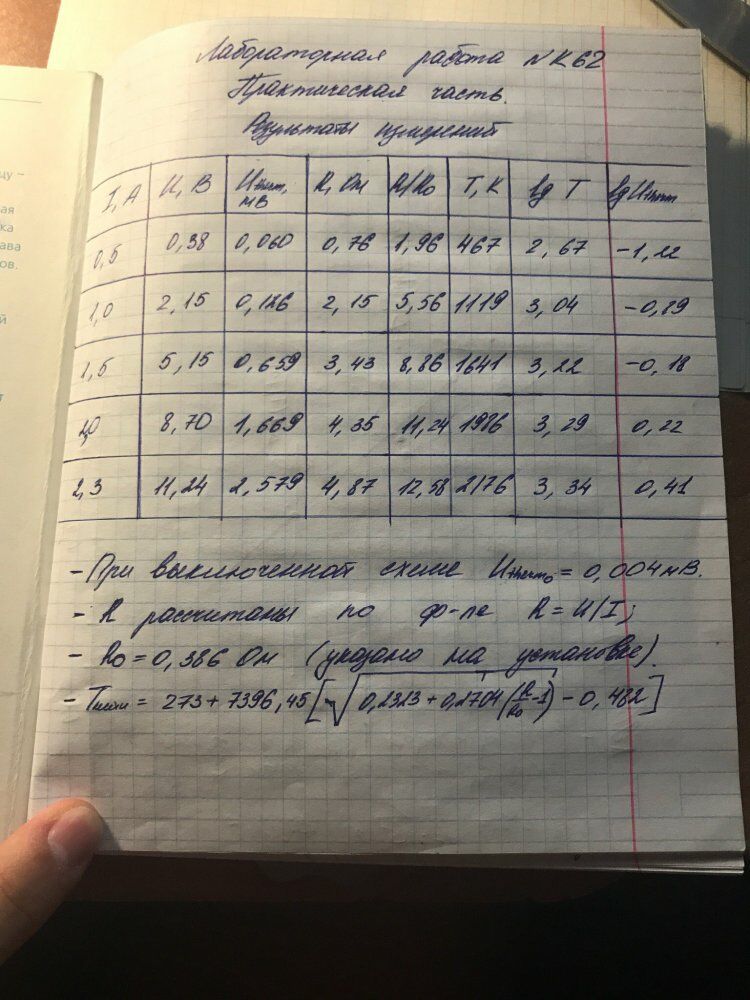 Лабораторная работа №К62
Практическая часть.
Результаты измерений
I, А U, В Uтерм, мВ R, Ом R/R₀ T, К lg T lg Uтерм
0,5 0,38 0,060 0,76 1,96 467 2,67 -1,22
1,0 2,15 0,126 2,15 5,56 1119 3,04 -0,89
1,5 5,15 0,659 3,43 8,86 1641 3,22 -0,18
2,0 8,70 1,669 4,35 11,24 1986 3,29 0,22
2,3 11,24 2,579 4,87 12,58 2176 3,34 0,41
- При выключенной схеме Uтерм₀ = 0,004 мВ.
- R рассчитаны по ф-ле R = U/I;
- R₀ = 0,386 Ом (указано на установке).
- T = 273 + 7396,45 [√(0,2323 + 0,2704 (R/R₀ - 1)) - 0,482]
цу –
ая
ка
ава
ов.
й